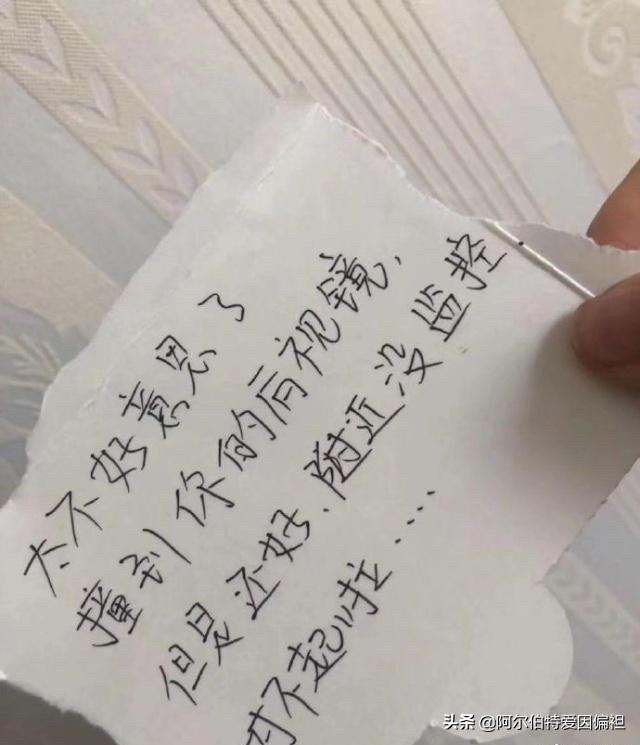 太不好意思了
撞到你的后视镜，
但是还好、附近没监控
对不起啦....
头条 @阿尔伯特爱因偏袒